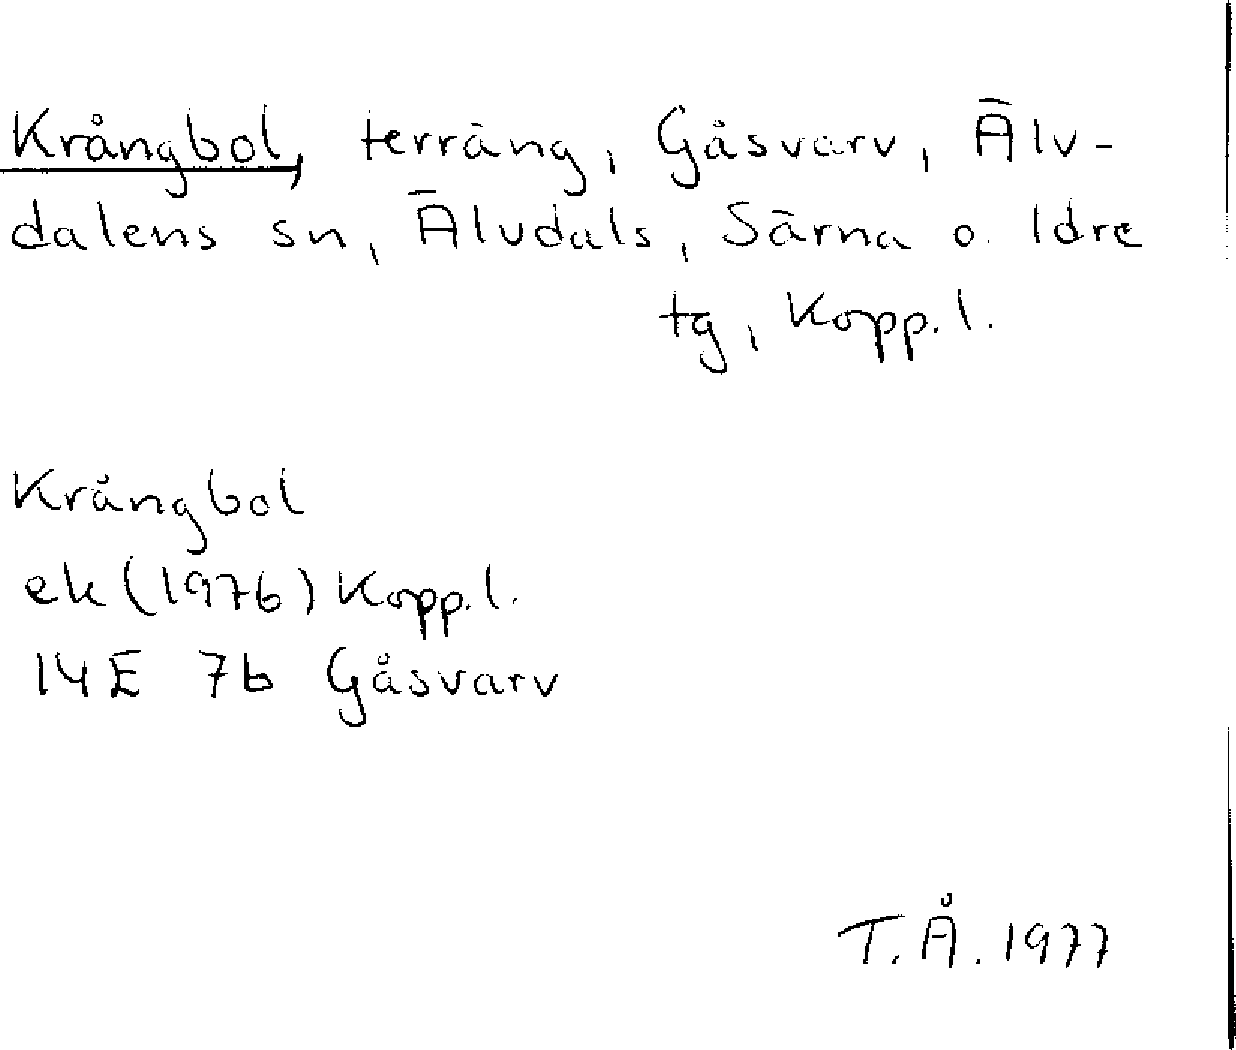 Krångbol, terräng, Gåsvarv, Älv-
dalens sn, Älvdals, Särna o. Idre
tg, Kopp. l.
Krångbol
ek (1976) Kopp. l.
14E 7b Gåsvarv
T.Å. 1977